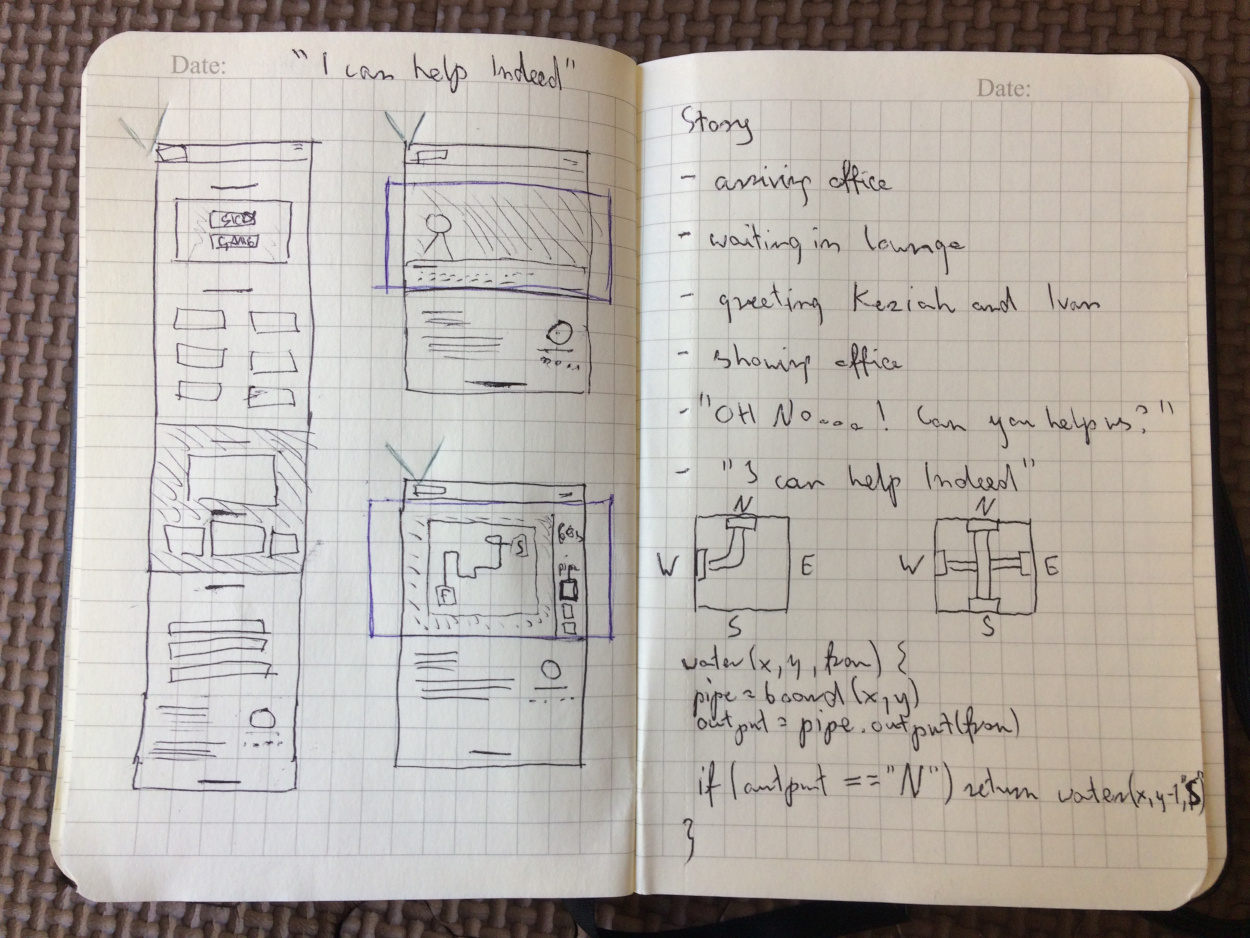 Date:
"I can help Indeed"
GAME
S
F
Date:
Story
- arriving office
- waiting in lounge
- greeting Keziah and Ivan
- showing office
- "OH NO....! Can you help us?"
- "I can help Indeed"
N
W
E
S
N
W
E
S
water(x, y, from) {
pipe = board(x,y)
output = pipe.output(from)
if (output == "N") return water(x, y-1,"S")
}